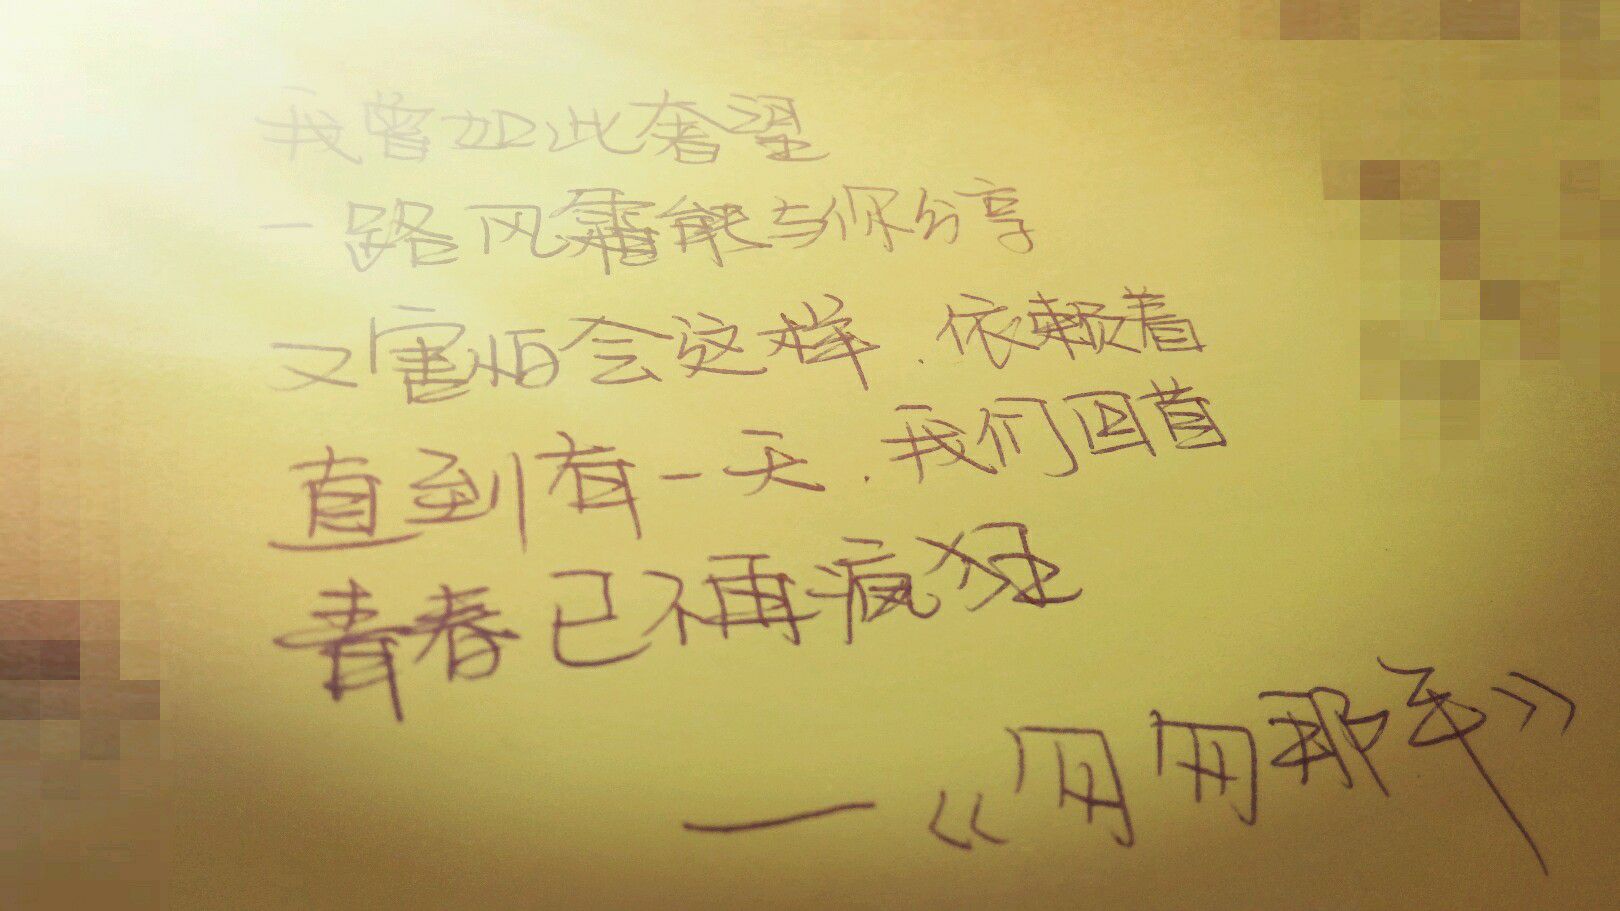 我曾如此奢望
一路风霜能与你分享
又害怕会这样.依赖着
直到有一天.我们回首
青春已不再疯狂
—《那年》